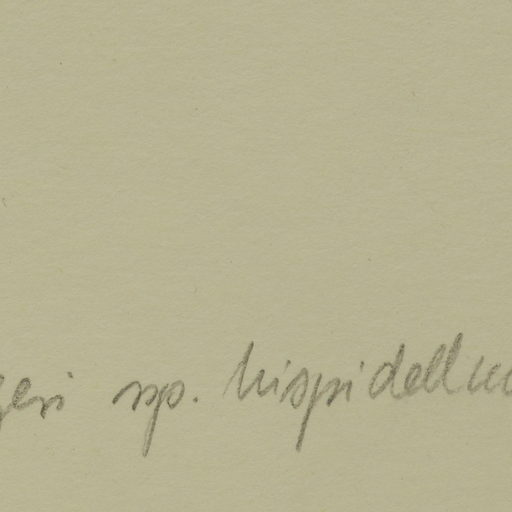 geri ssp. hispidellu